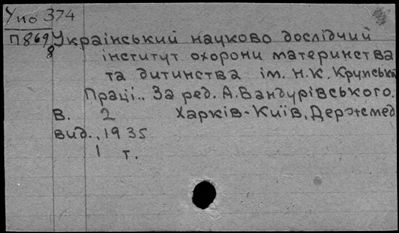 Упо 374
П869 Український науково дослідчий
8 інститут охорони материнства
та дитинства ім. Н.К. Крупської
Праці.. За ред. А. Вандурівського.
В. 2 Харків-Київ, Держмед
вид., 1935
1 т.